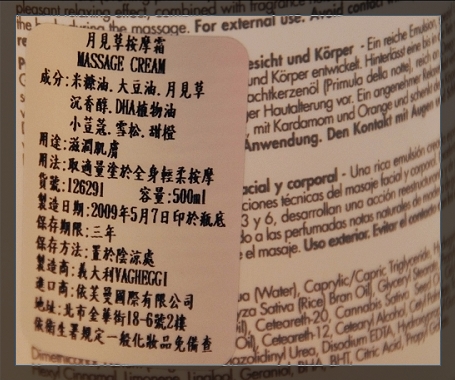 pleasant relaxing effect, combined with fragrance
the body during the massage. For external use. Avoid contact
月見草按摩霜
MASSAGE CREAM
成分:米糠油.大豆油.月見草
沉香醇.DHA植物油
小荳蔻.雪松.甜橙
用途:滋潤肌膚
用法:取適量塗於全身輕柔按摩
貨號:126291 容量:500ml
製造日期:2009年5月7日印於瓶底
保存期限:三年
保存方法:置於陰涼處
製造商:義大利VAGHEGGI
進口商:依芙曼國際有限公司
地址:北市金華街18-6號2樓
依衛生署規定一般化妝品免備查
esicht und Körper - Ein reiche Emulsion
und Körper entwickelt. Hinterlässt eine
achtkerzenöl (Primula della notte), reich
ger Hautalterung vor. Ein angenehmer
mit Kardamom und Orange und schenkt
Anwendung. Den Kontakt mit Augen
acial y corporal - Una rica emulsión
ciones técnicas del masaje facial y corporal
3 y 6, desarrollan una acción
do a las perfumadas notas naturales de
e el masaje. Uso exterior. Evitar el contacto
ua (Water), Caprylic/Capric Triglyceride,
yza Sativa (Rice) Bran Oil), Glyceryl
Oil), Ceteareth-20, Cannabis Sativa
Oil), Ceteareth-12, Cetearyl Alcohol
zolidinyl Urea, Disodium EDTA,
BHA, BHT, Citric Acid,
Hexyl Cinnamal, Limonene, Linalool, Geraniol